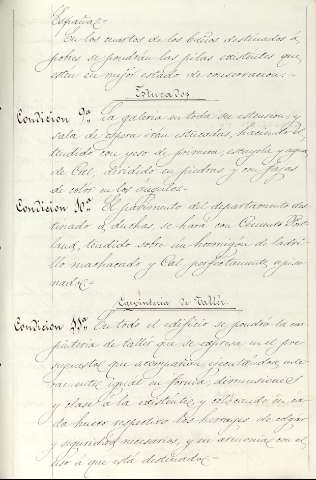 España.-
En los cuartos de los baños destinados á
pobres se pondrán las pilas existentes que
estén en mejor estado de conservacion.-
Estucados
Condicion 9ª La galeria en toda su estension, y
sala de espera iran estucadas, haciendo el
tendido con yeso de primera, escayola y agua
de Cal, dividido en piedras y con fajas
de color en los ángulos.-
Condicion 10ª El pavimento del departamento des
tinado á duchas, se hará con Cemento Port-
land, tendido sobre un hormigon de ladri-
llo machacado y Cal perfectamente apiso-
nado.-
Carpinteria de Taller.
Condicion 11ª En todo el edificio se pondrá la car
pinteria de taller que se espresa en el pre
supuesto que acompaña, ejecutándose ente-
ramente igual en forma, dimensiones
y clase á la existente, y colocando en ca-
da hueco respectivo los herrages de colgar
y seguridad necesarios, y en armonia con el
uso á que está destinado.-